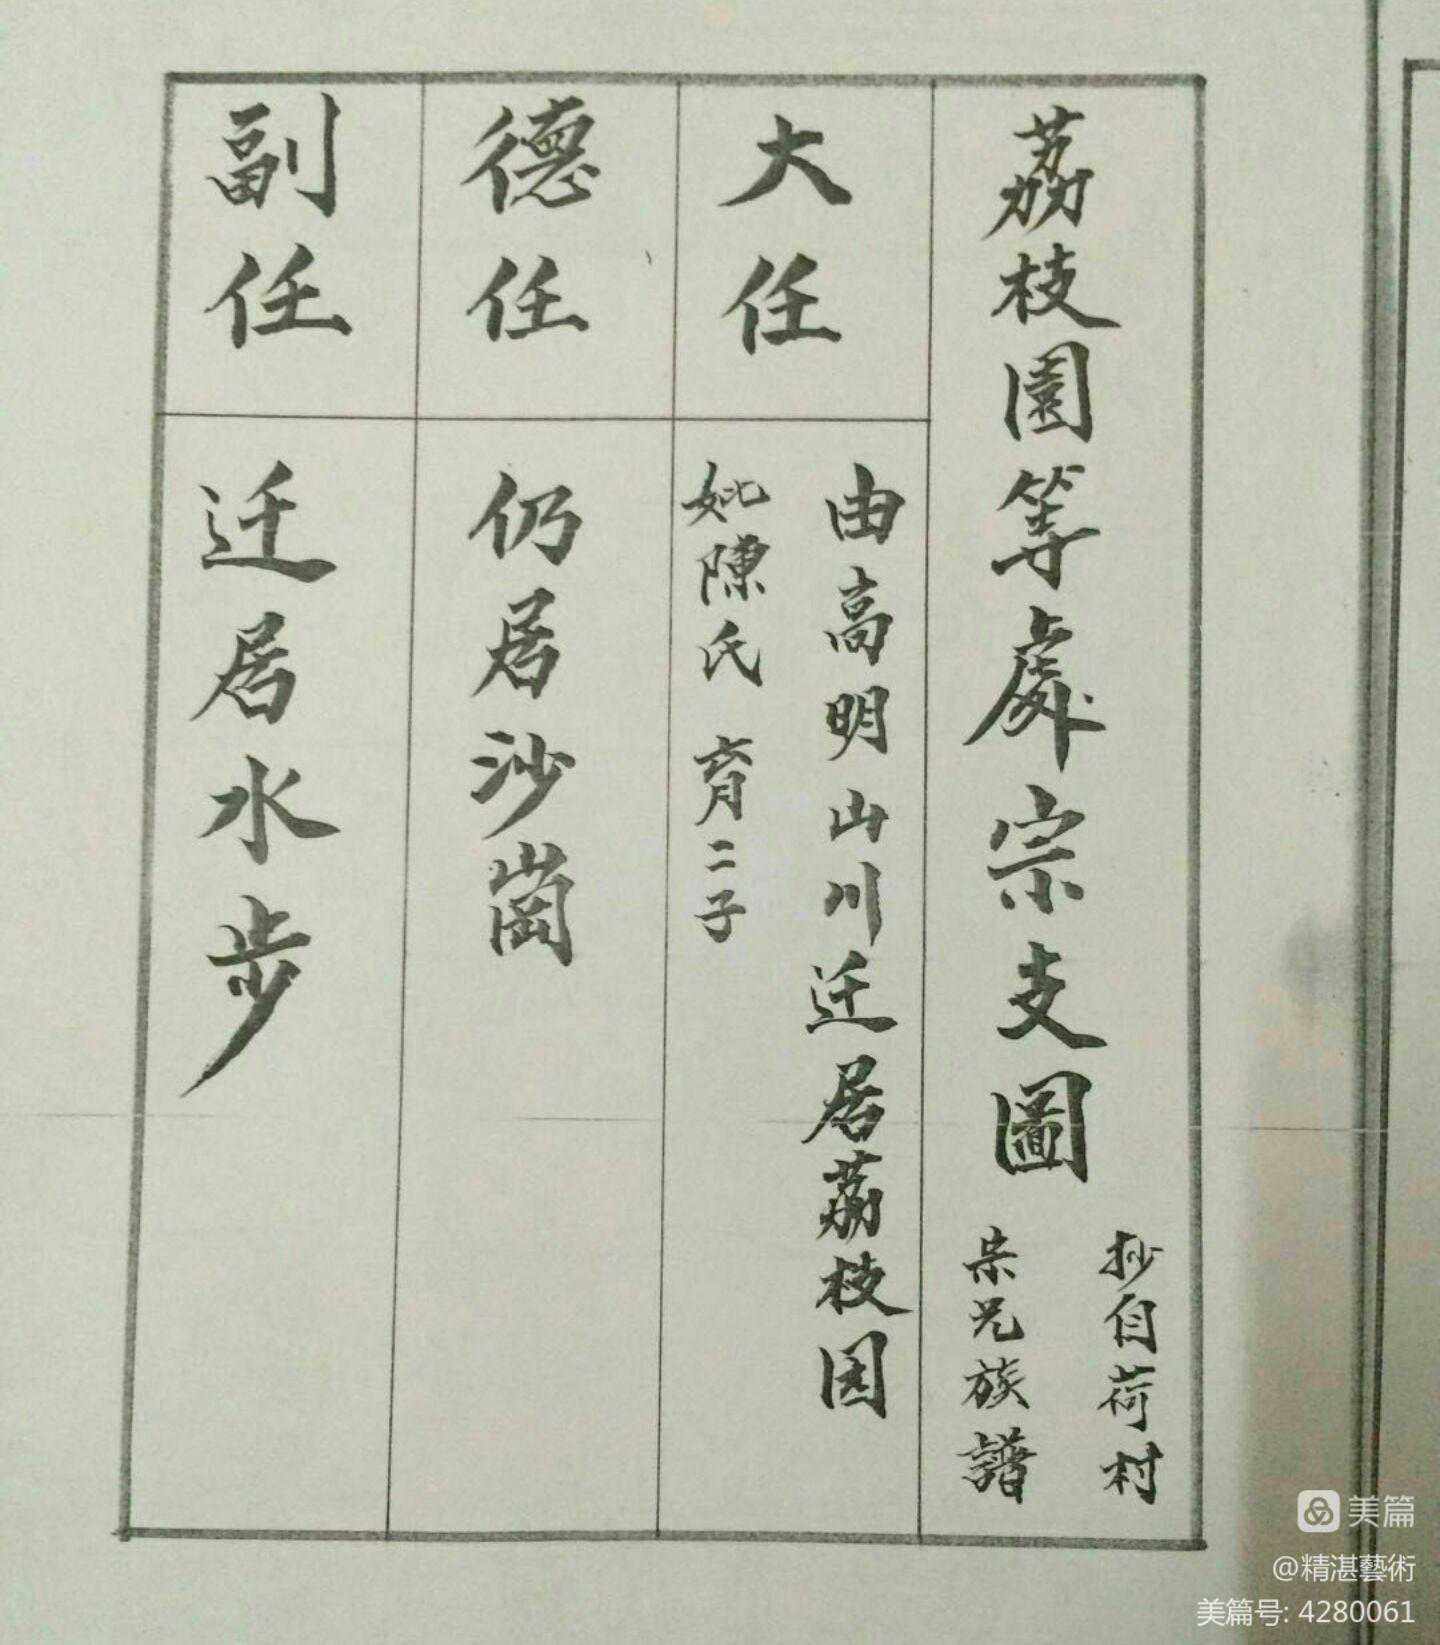 荔枝園等處宗支圖
抄自荷村
宗兄族譜
大任
由高明山川迁居荔枝园
妣陳氏 育二子
德任
仍居沙崗
副任
迁居水步
美篇
@精湛藝術
美篇号: 4280061